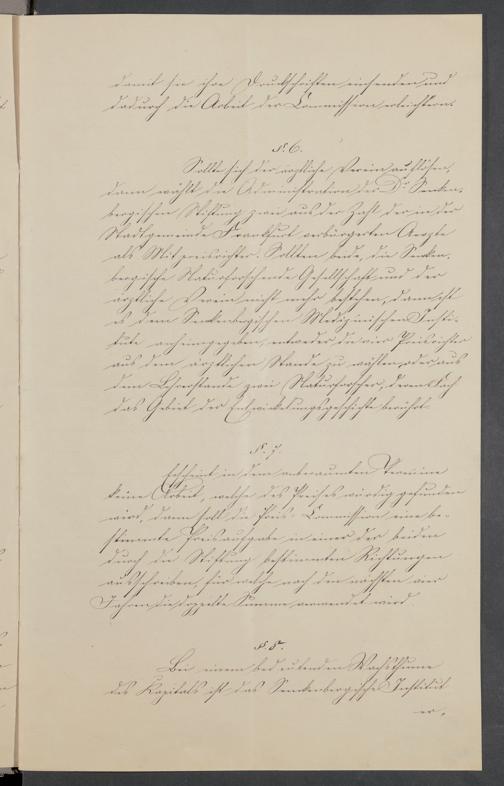 damit sie ihre Druckschriften einsenden und
dadurch die Arbeit der Commission erleichtern.
§. 6.
Sollte sich der ärztliche Verein auflösen,
dann wählt die Administration der Dr. Senken-
bergischen Stiftung zwei aus der Zahl der in der
Stadtgemeinde Frankfurt verbürgerten Aerzte
als Mitpreisrichter. Sollten beide, die Senken-
bergische Naturforschende Gesellschaft und der
ärztliche Verein nicht mehr bestehen, dann ist
es dem Senkenbergischen Medizinischen Insti-
tute anheimgegeben, entweder die vier Preisrichter
aus dem ärztlichen Stande zu wählen, oder aus
dem Lehrerstande zwei Naturforscher, deren Fach
das Gebiet der Entwickelungsgeschichte berührt.
§. 7.
Erscheint in dem anberaumten Termine
keine Arbeit, welche des Preises würdig gefunden
wird, dann soll die Preis-Commission eine be-
stimmte Preisaufgabe in einer der beiden
durch die Stiftung bestimmten Richtungen
ausschreiben, für welche nach den nächsten vier
Jahren die doppelte Summe verwendet wird.
§. 8.
Bei einem bedeutenden Wachsthume
des Kapitals ist das Senkenbergische Institut
er-